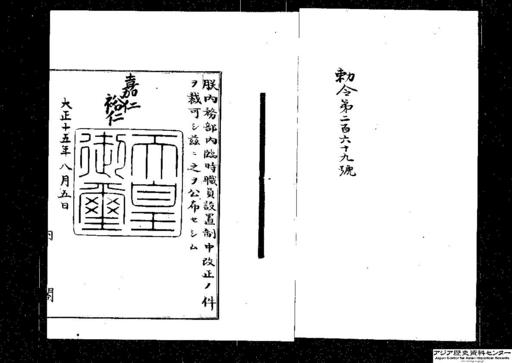 勅令第二百六十九號
朕內務部內臨時職員設置制中改正ノ件
ヲ裁可シ茲ニ之ヲ公布セシム
嘉仁
裕仁
天皇御璽
大正十五年八月五日
内閣
アジア歴史資料センター
Japan Center for Asian Historical Records